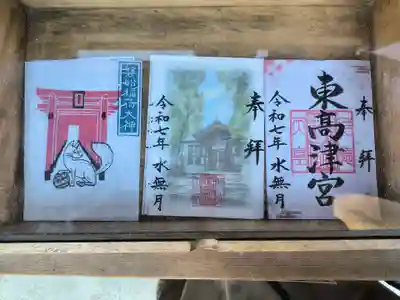 磐船稲荷大神
奉拝
令和七年 水無月
奉拝
東高津宮
令和七年 水無月